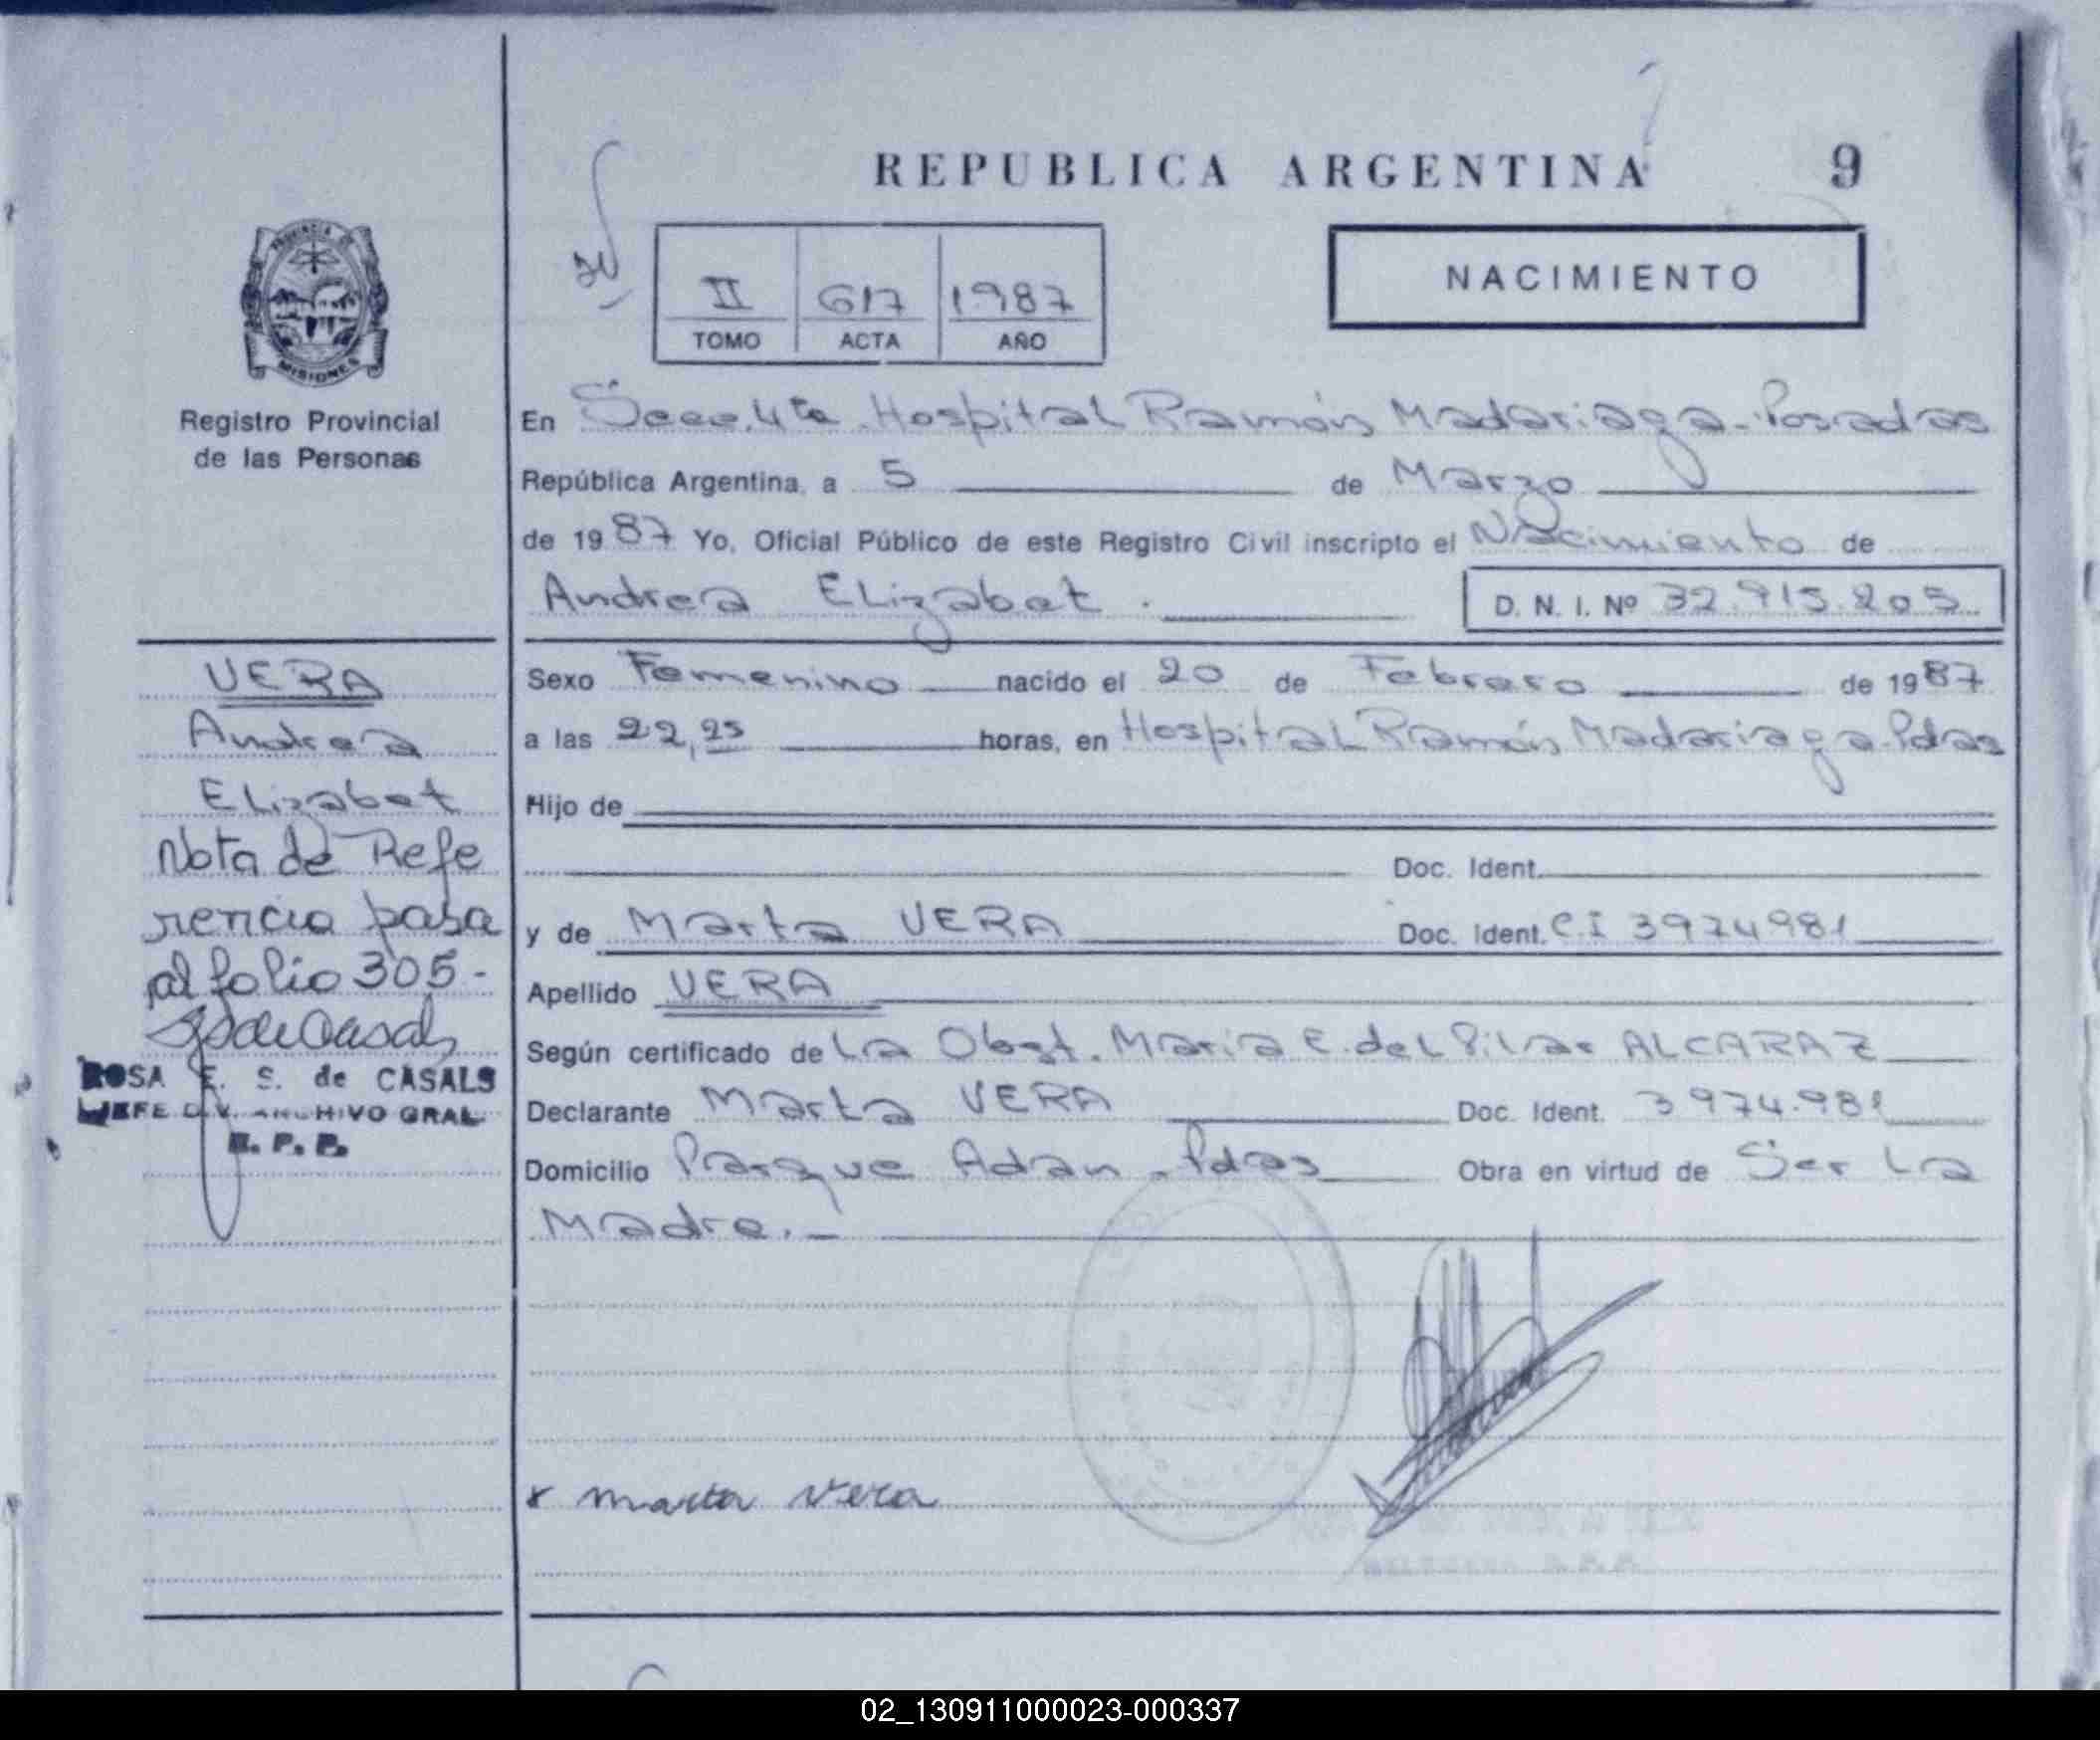 REPUBLICA ARGENTINA 9
NACIMIENTO
II 617 1987
TOMO ACTA AÑO
PROVINCIA DE
MISIONES
Registro Provincial
de las Personas
En Secc. 4ta Hospital Ramón Madariaga - Posadas
República Argentina, a 5 de Marzo
de 1987 Yo, Oficial Público de este Registro Civil inscripto el Nacimiento de
Andrea Elizabet.
D. N. I. Nº 32.915.205
Sexo Femenino nacido el 20 de Febrero de 1987
a las 22,25 horas, en Hospital Ramón Madariaga - Pdas
Hijo de
Doc. Ident.
y de Marta VERA Doc. Ident. C.I 3974981
Apellido VERA
Según certificado de La Obst. Maria E. del Pilar ALCARAZ
Declarante Marta VERA Doc. Ident. 3974.981
Domicilio Parque Adan - Pdas Obra en virtud de Ser La
Madre.-
x marta vera
VERA
Andrea
Elizabet
Nota de Refe
rencia pasa
al folio 305-
ROSA E. S. de CASALS
JEFE DIV. ARCHIVO GRAL.
R. P. P.
02_130911000023-000337